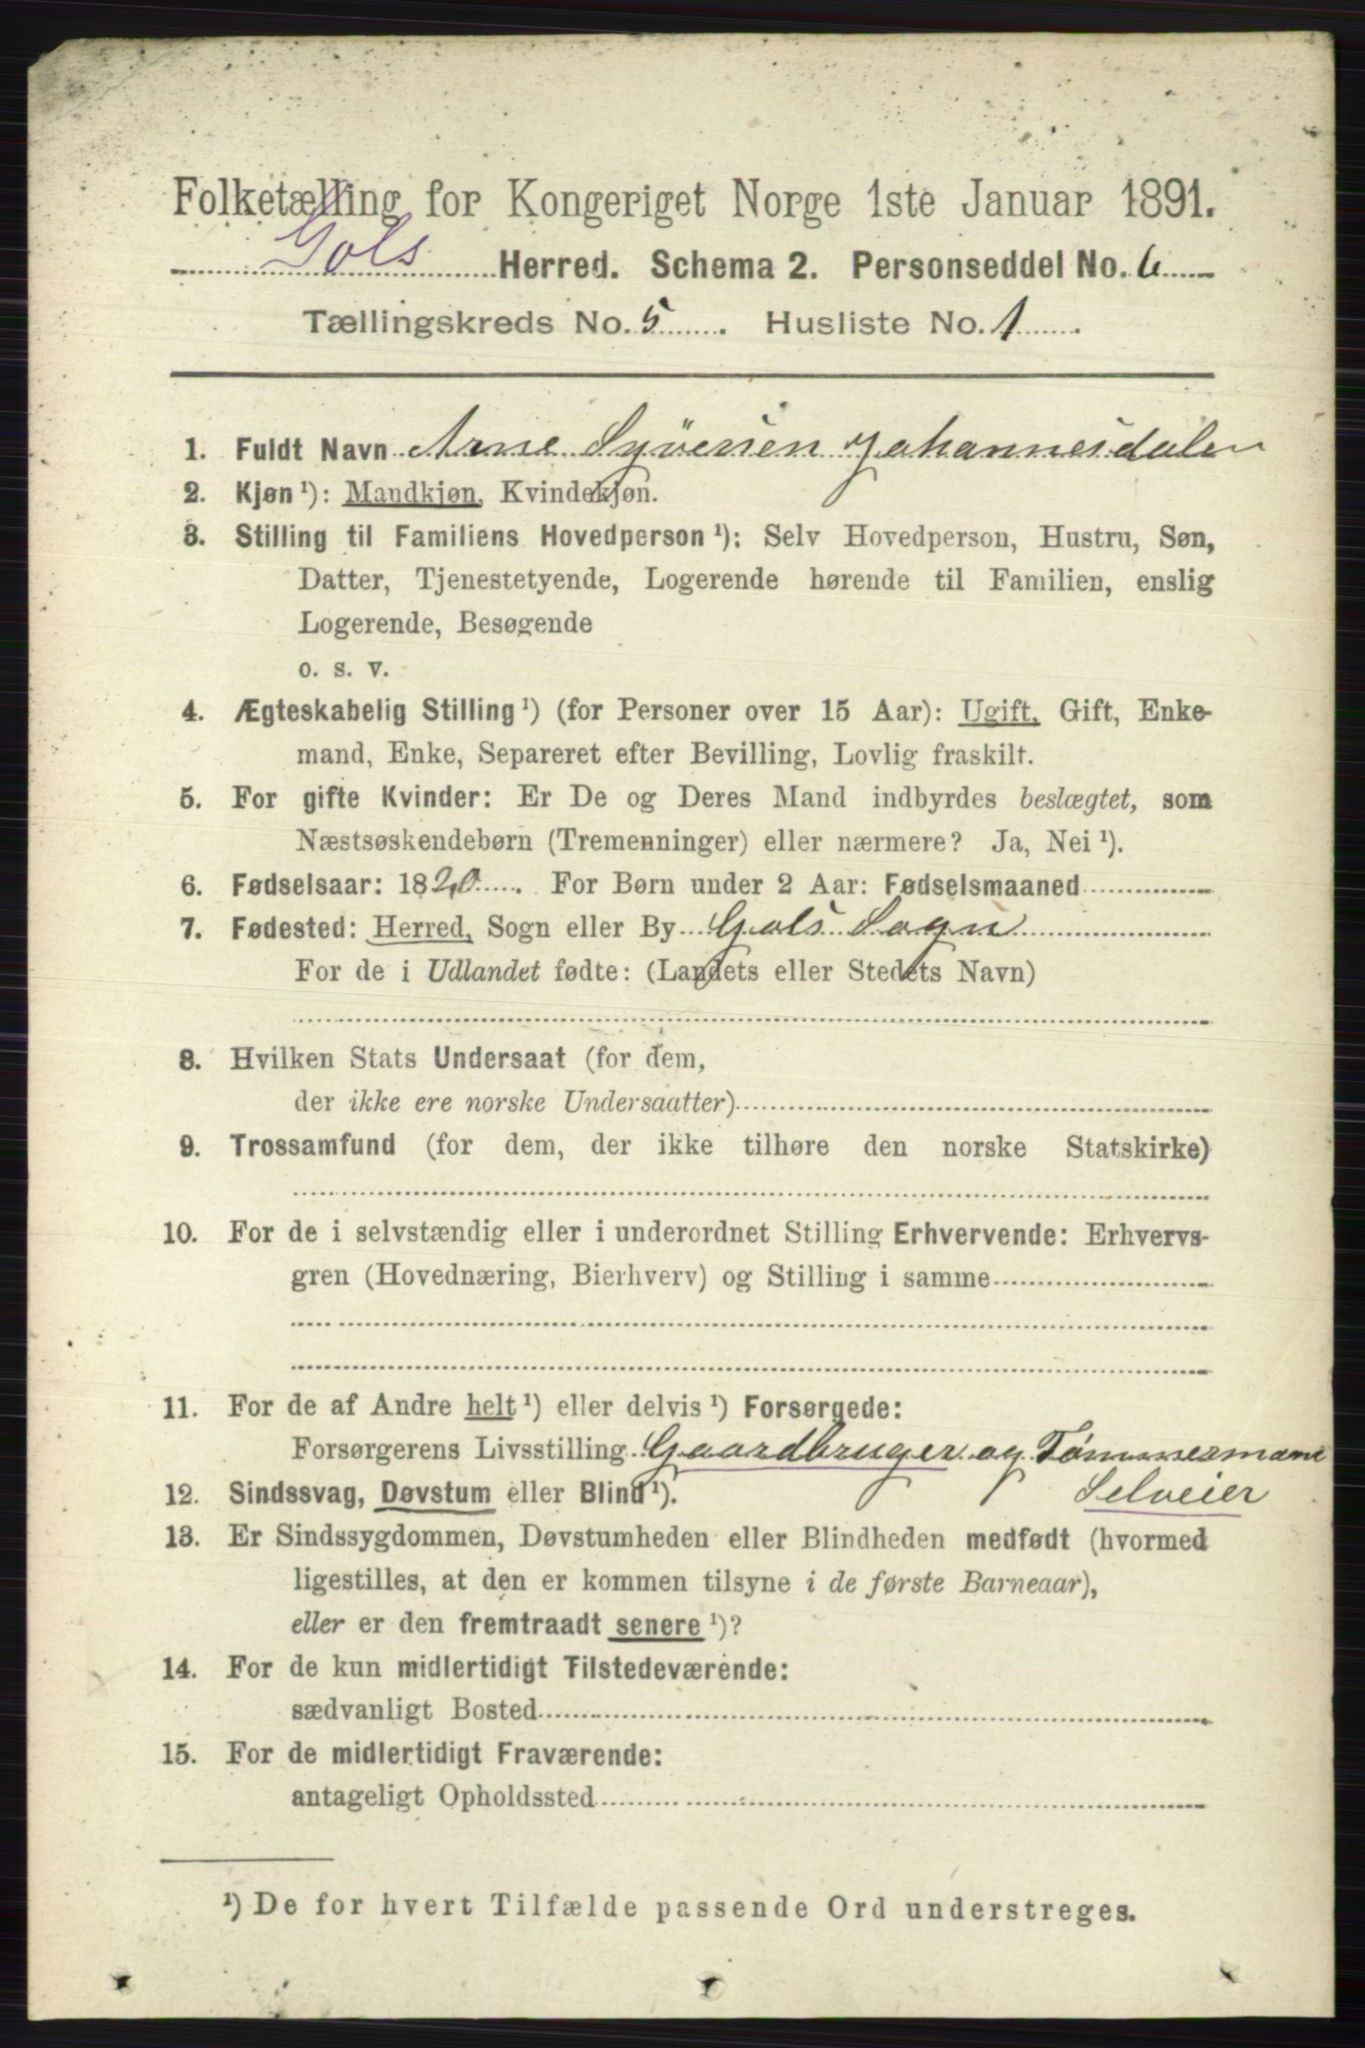 Folketælling for Kongeriget Norge 1ste Januar 1891.
Gols Herred. Schema 2. Personseddel No. 6
Tællingskreds No. 5. Husliste No. 1.
1. Fuldt Navn Arne Syversen Johannesdalen
2. Kjøn ¹): Mandkjøn, Kvindekjøn.
3. Stilling til Familiens Hovedperson ¹): Selv Hovedperson, Hustru, Søn,
Datter, Tjenestetyende, Logerende hørende til Familien, enslig
Logerende, Besøgende
o. s. v.
4. Ægteskabelig Stilling ¹) (for Personer over 15 Aar): Ugift, Gift, Enke-
mand, Enke, Separeret efter Bevilling, Lovlig fraskilt.
5. For gifte Kvinder: Er De og Deres Mand indbyrdes beslægtet, som
Næstsøskendebørn (Tremenninger) eller nærmere? Ja, Nei ¹).
6. Fødselsaar: 1820. For Børn under 2 Aar: Fødselsmaaned
7. Fødested: Herred, Sogn eller By Gols Sogn
For de i Udlandet fødte: (Landets eller Stedets Navn)
8. Hvilken Stats Undersaat (for dem,
der ikke ere norske Undersaatter)
9. Trossamfund (for dem, der ikke tilhøre den norske Statskirke)
10. For de i selvstændig eller i underordnet Stilling Erhvervende: Erhvervs-
gren (Hovednæring, Bierhverv) og Stilling i samme
11. For de af Andre helt ¹) eller delvis ¹) Forsørgede:
Forsørgerens Livsstilling Gaardbruger og Tømmermand
12. Sindssvag, Døvstum eller Blind ¹). Selveier
13. Er Sindssygdommen, Døvstumheden eller Blindheden medfødt (hvormed
ligestilles, at den er kommen tilsyne i de første Barneaar),
eller er den fremtraadt senere ¹)?
14. For de kun midlertidigt Tilstedeværende:
sædvanligt Bosted
15. For de midlertidigt Fraværende:
antageligt Opholdssted
¹) De for hvert Tilfælde passende Ord understreges.